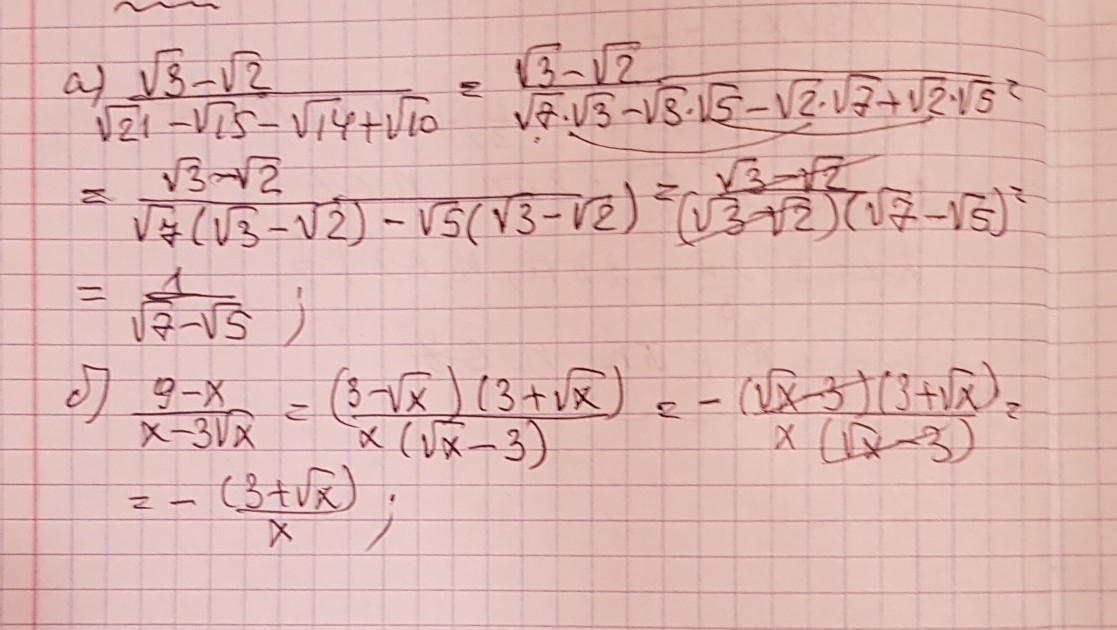 а) (√3-√2)/(√21-√15-√14+√10) = (√3-√2)/(√7·√3-√3·√5-√2·√7+√2·√5) =
= (√3-√2)/(√7(√3-√2)-√5(√3-√2)) = (√3-√2)/((√3-√2)(√7-√5)) =
= 1/(√7-√5) ;
б) (9-x)/(x-3√x) = ((3-√x)(3+√x))/(x(√x-3)) = -((√x-3)(3+√x))/(x(√x-3)) =
= - (3+√x)/x ;